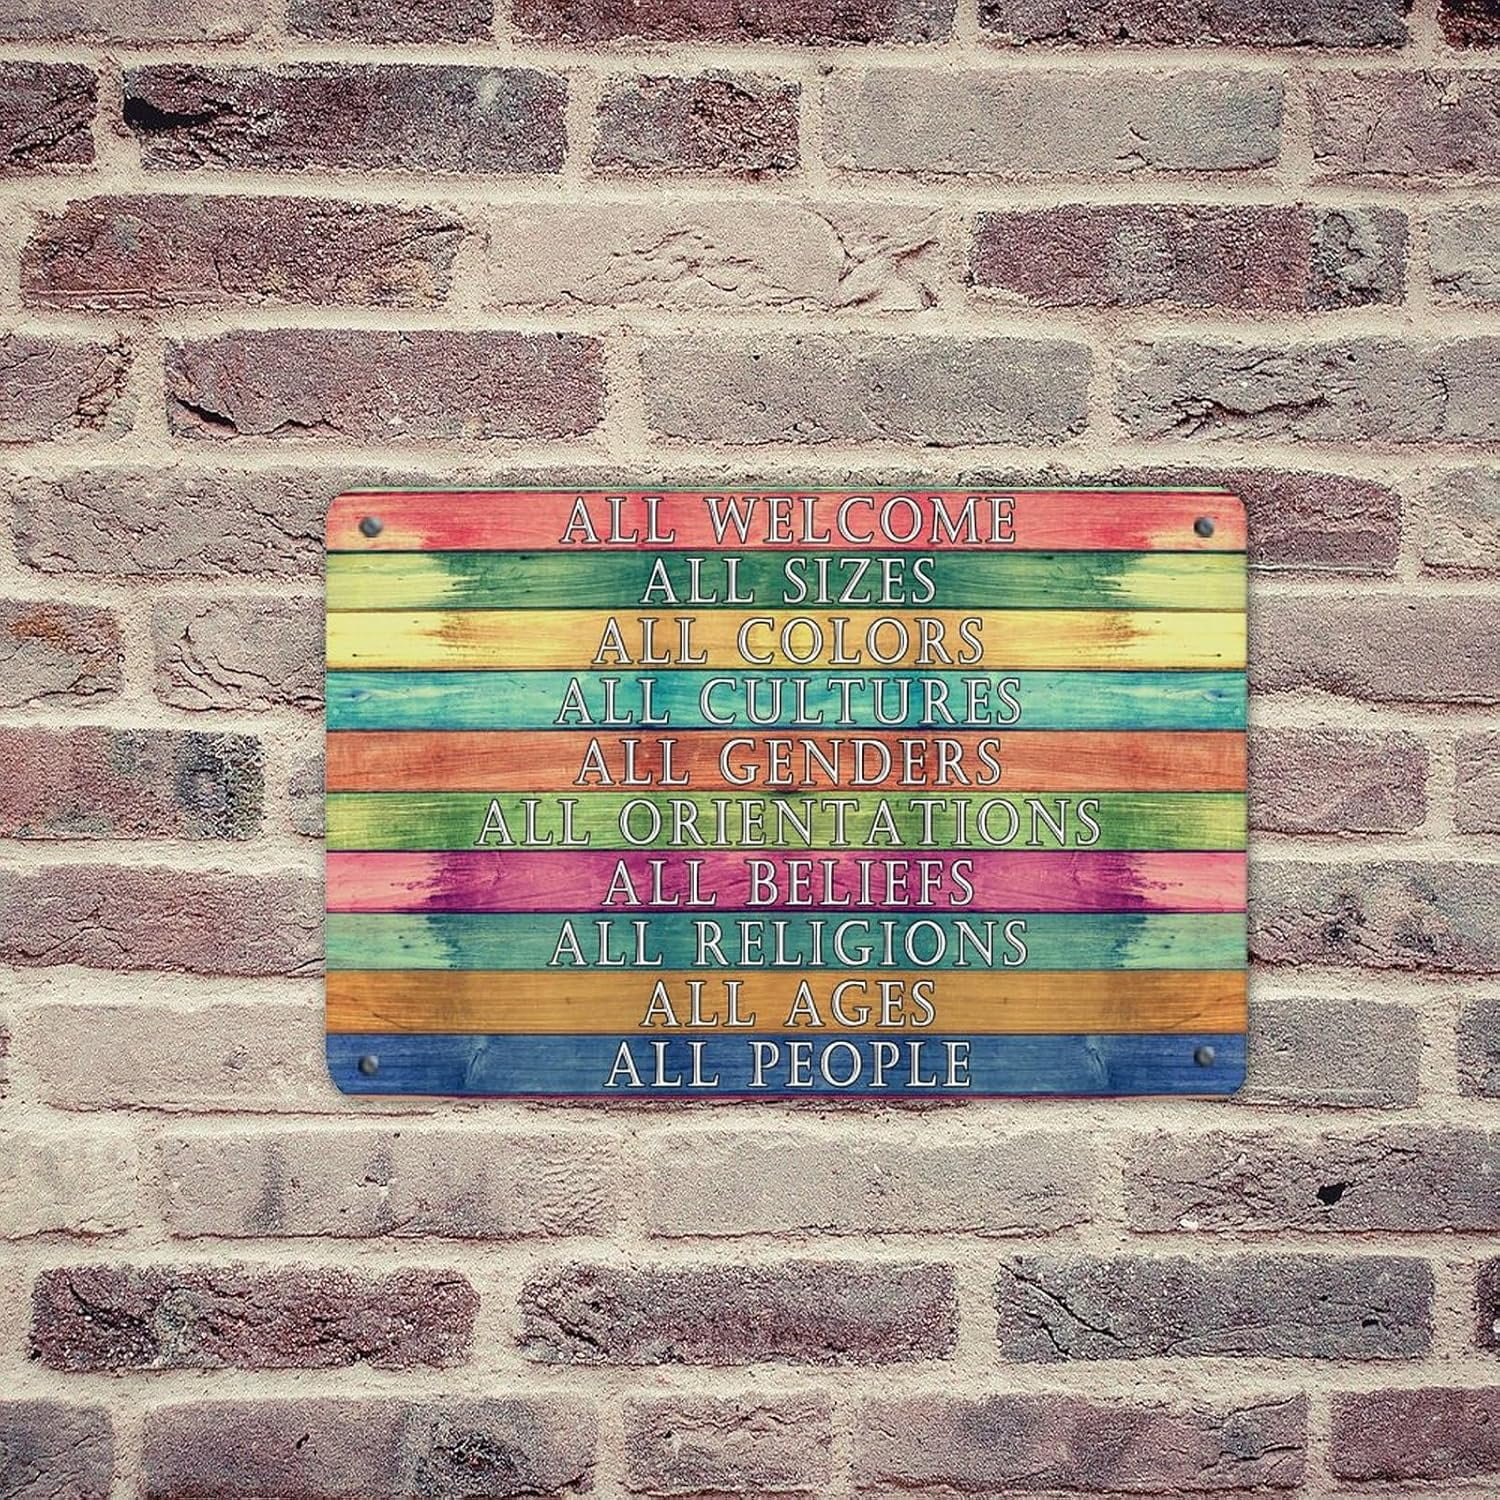 ALL WELCOME
ALL SIZES
ALL COLORS
ALL CULTURES
ALL GENDERS
ALL ORIENTATIONS
ALL BELIEFS
ALL RELIGIONS
ALL AGES
ALL PEOPLE